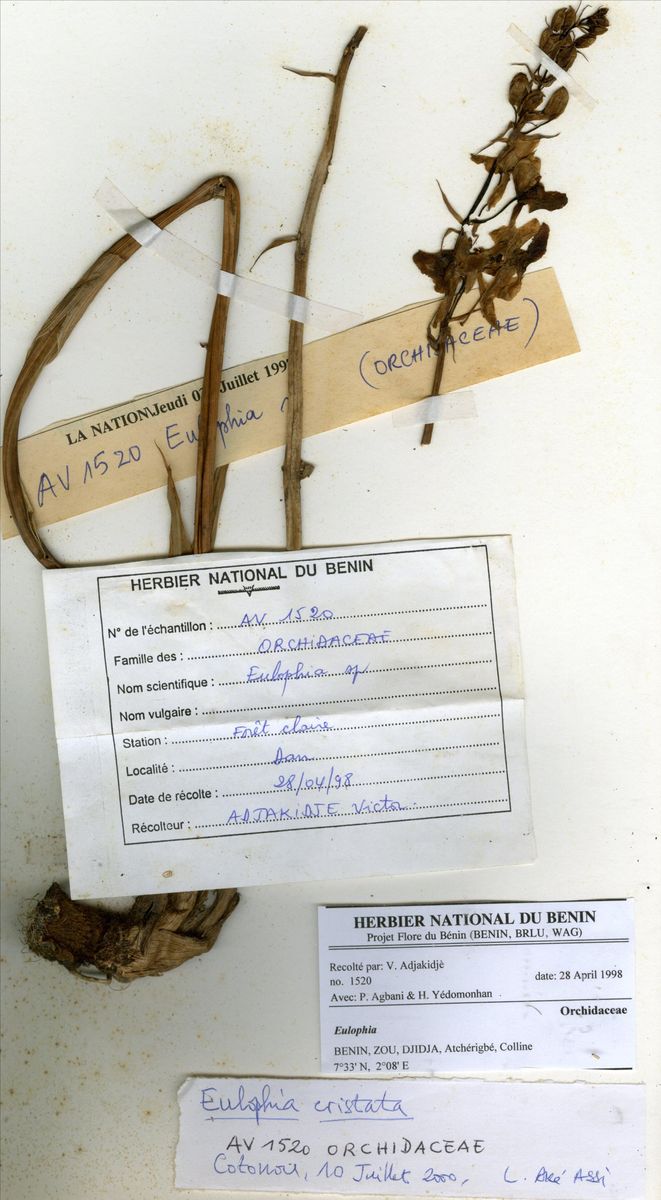 (ORCHIDACEAE)
LA NATION\Jeudi 0 Juillet 199
AV 1520 Eulophia
HERBIER NATIONAL DU BENIN
N° de l'échantillon : AV 1520
Famille des : ORCHIDACEAE
Nom scientifique : Eulophia sp
Nom vulgaire :
Station : Forêt claire
Localité : Dan
Date de récolte : 28/04/98
Récolteur : ADJAKIDJE Victor
HERBIER NATIONAL DU BENIN
Projet Flore du Bénin (BENIN, BRLU, WAG)
Recolté par: V. Adjakidjè
no. 1520 date: 28 April 1998
Avec: P. Agbani & H. Yédomonhan
Orchidaceae
Eulophia
BENIN, ZOU, DJIDJA, Atchérigbé, Colline
7°33' N, 2°08' E
Eulophia cristata
AV 1520 ORCHIDACEAE
Cotonou, 10 Juillet 2000, L. Aké Assi